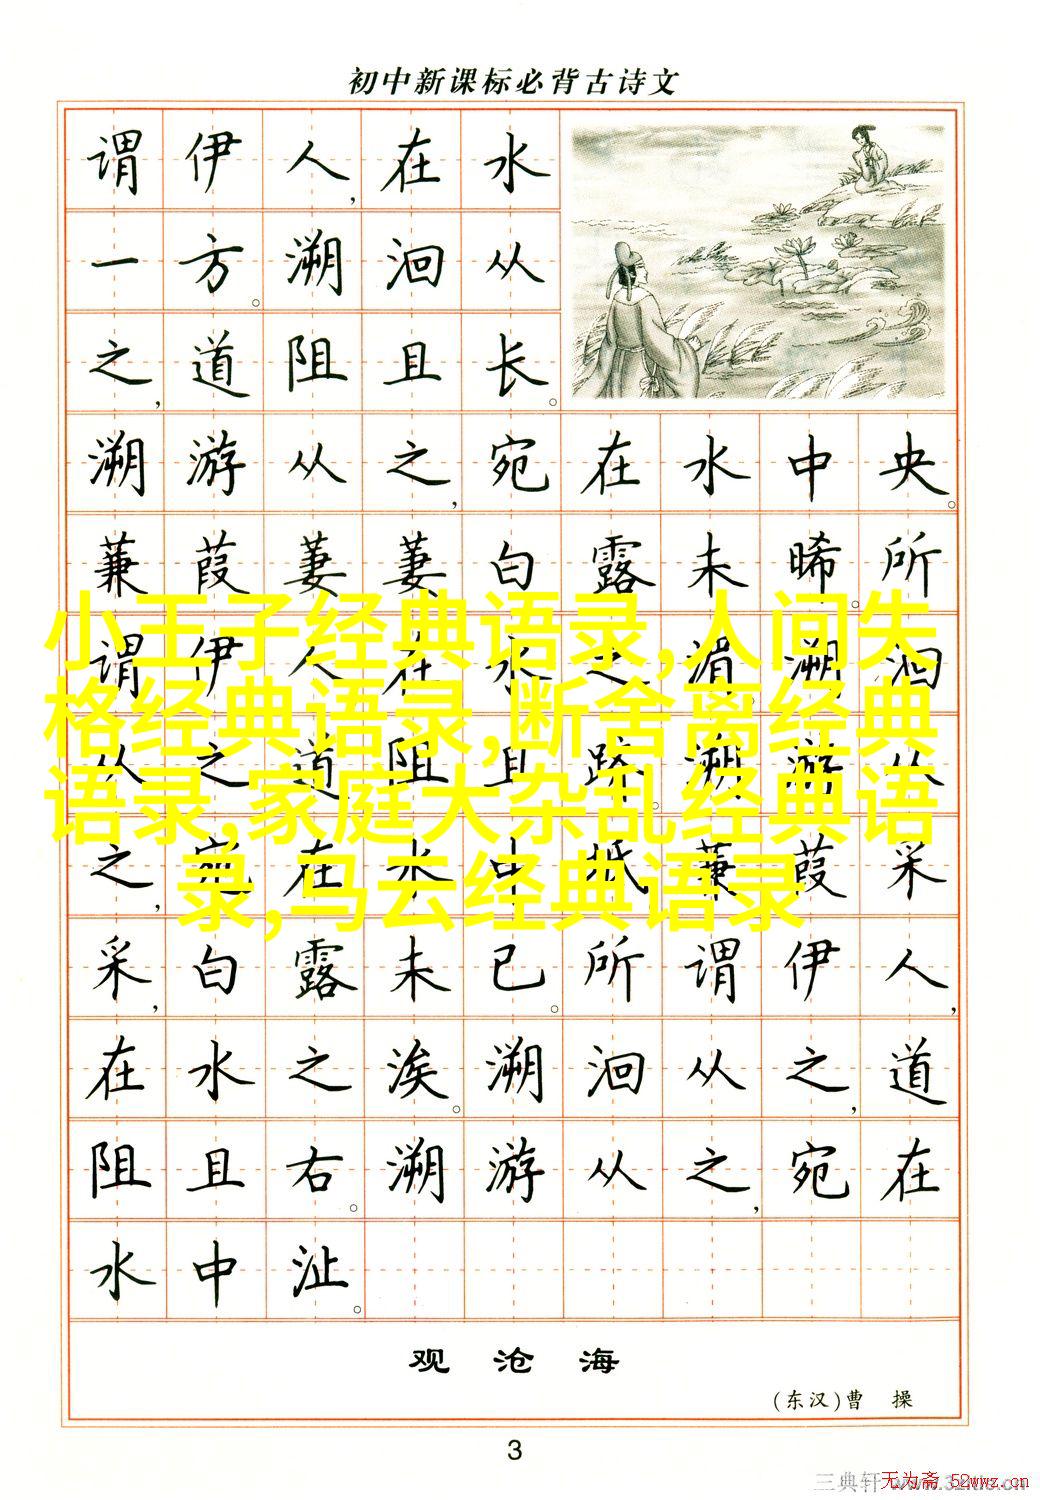 初中新课标必背古诗文
谓伊人,在水
一方。溯洄从
之,道阻且长。
溯游从之,宛在水中央。
蒹葭萋萋白露未晞。所
谓伊人在水之湄溯洄
从之道阻且跻。溯游从
之,宛在水中坻。蒹葭采
采,白露未已。所谓伊人,
在水之涘。溯洄从之,道
阻且右。溯游从之,宛在
水中沚。
小王子经典语录,人间失
格经典语录,断舍离经典
语录,家庭大杂乱经典语
录,马云经典语录
观沧海
(东汉)曹 操
3
三典轩
无为斋 52wwz.cn